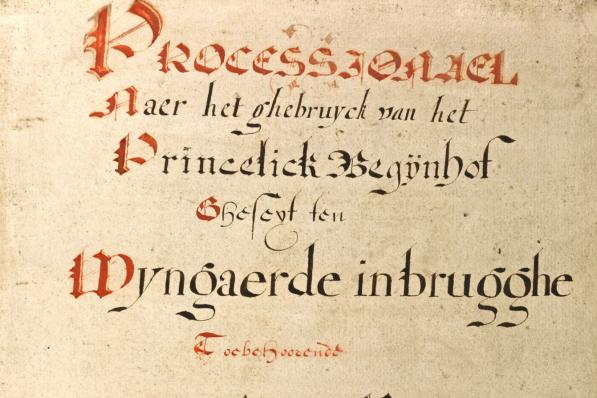 PROCESSIONAEL
Naer het ghebruyck van het
Princelick Begÿnhof
Gheseyt ten
Wyngaerde in brugghe
Toebehoorende